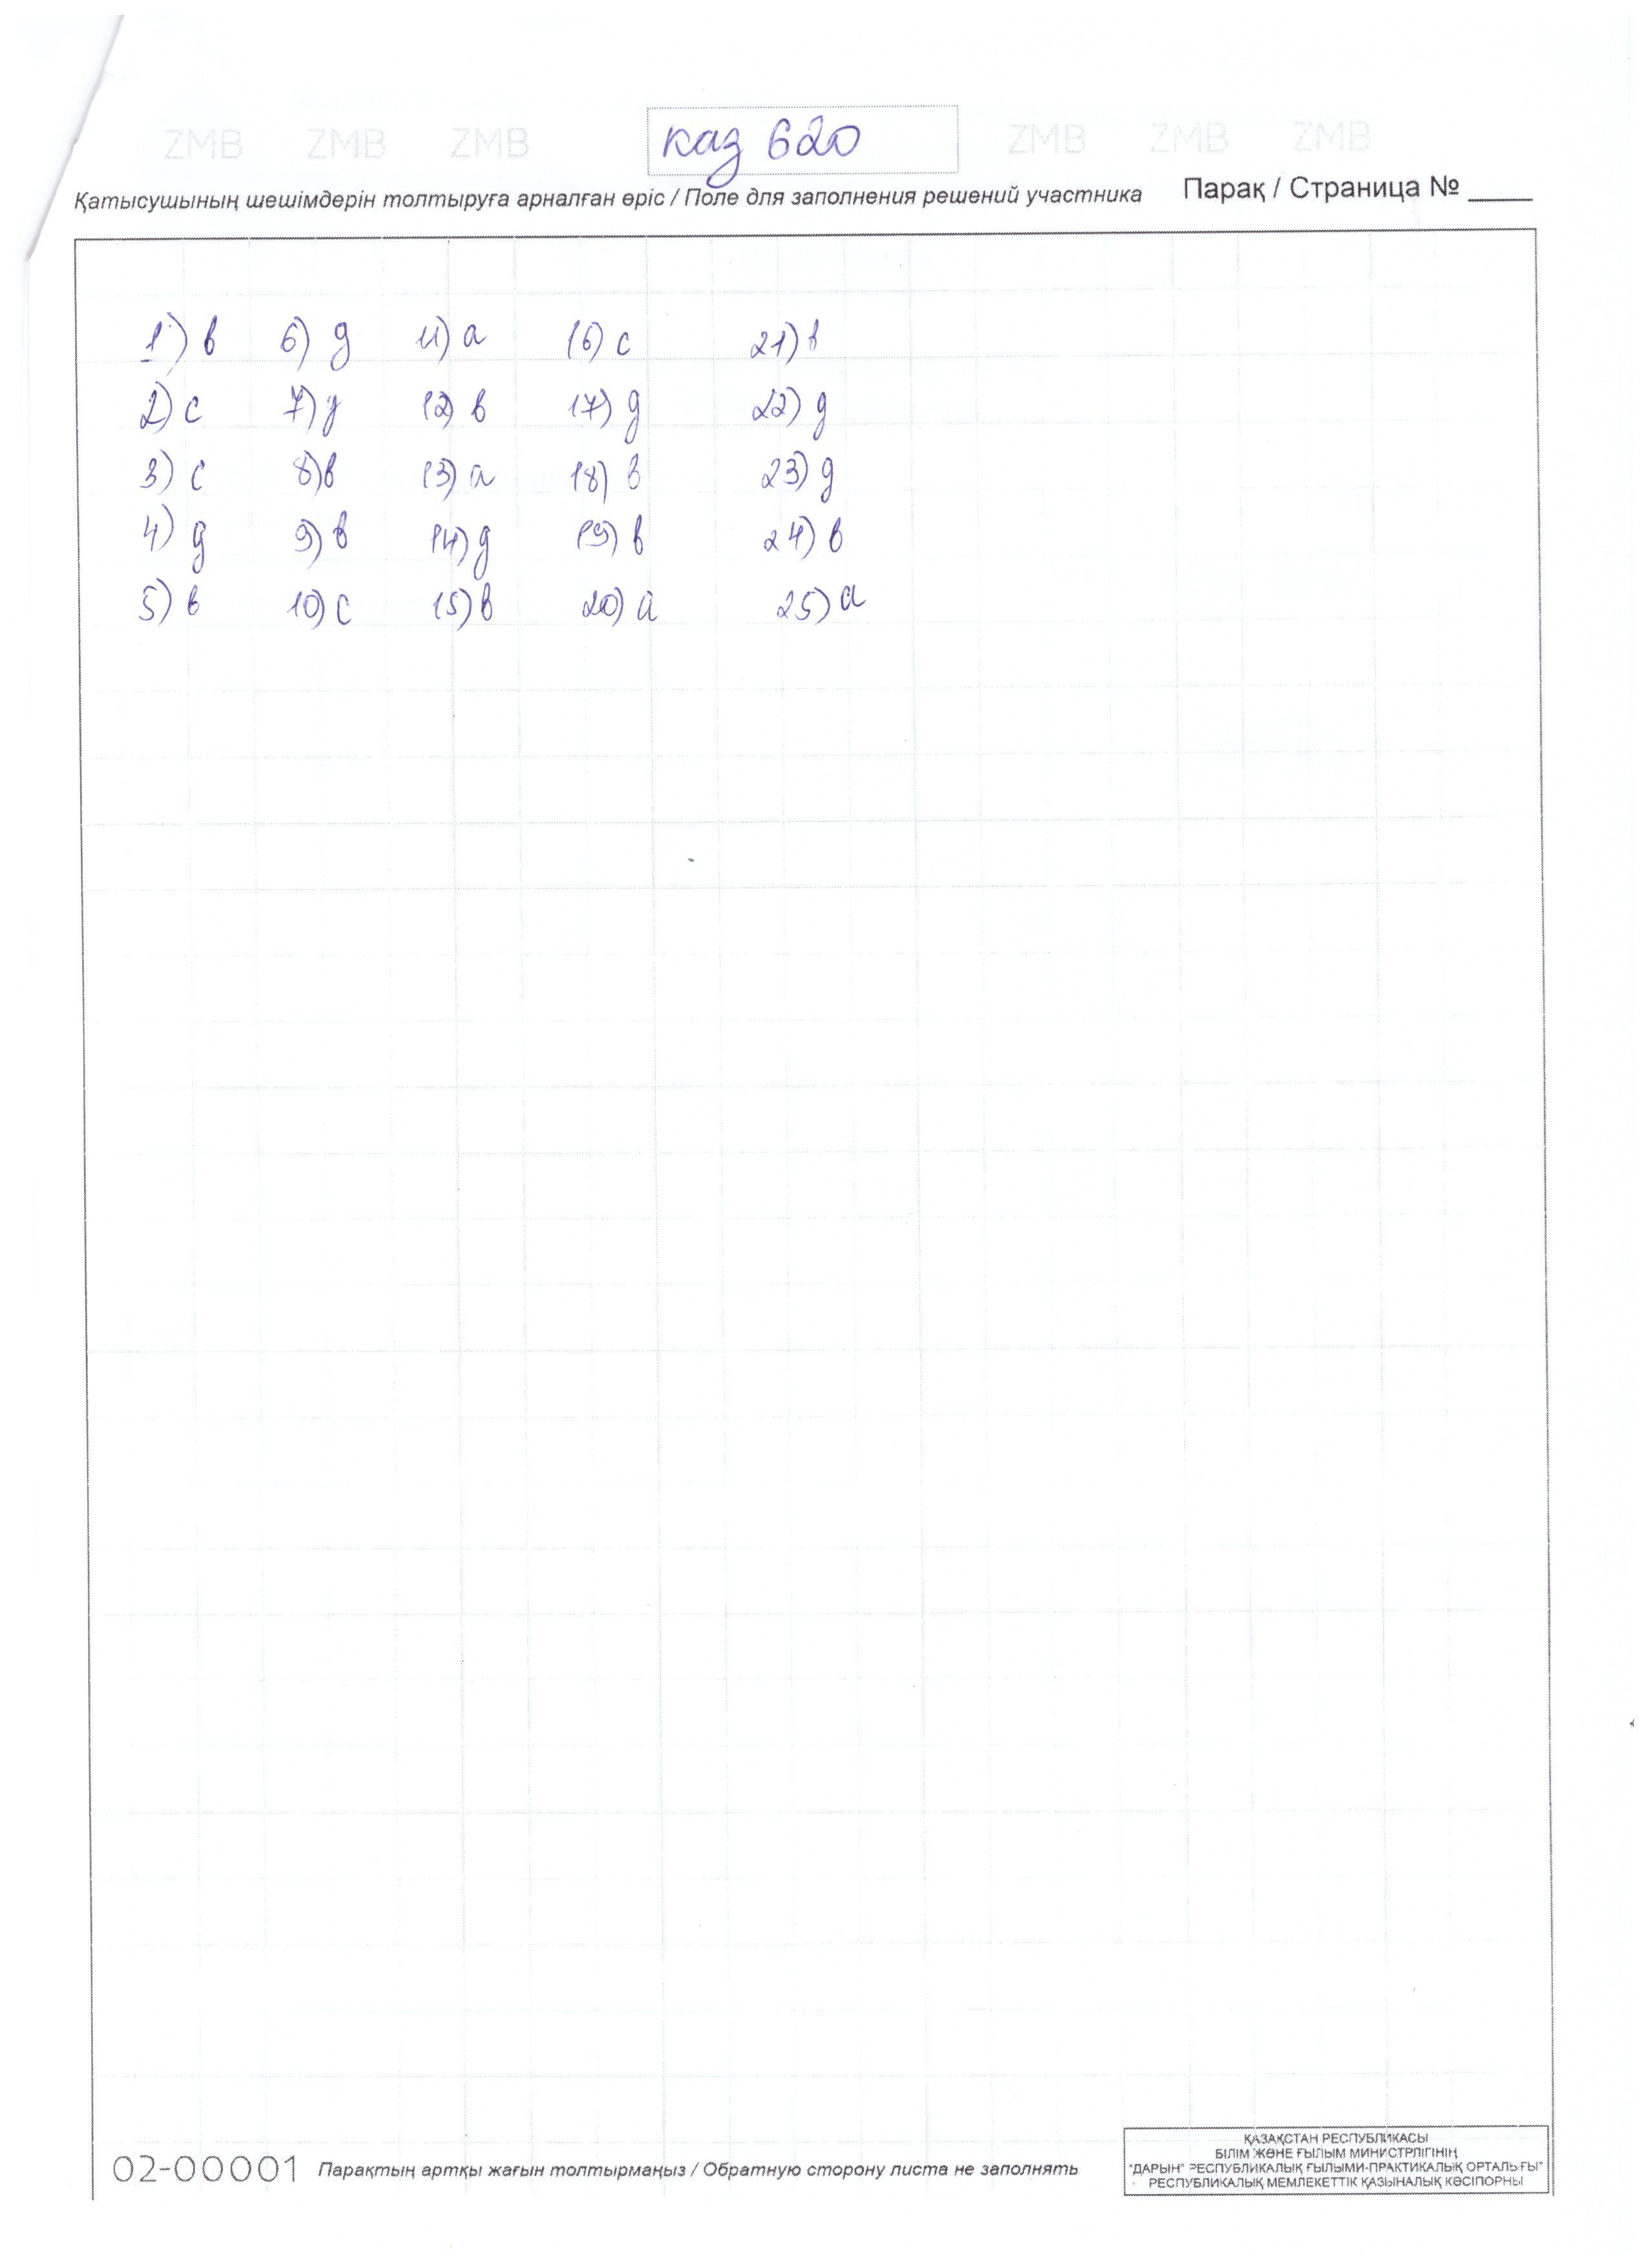 ZMB ZMB ZMB каз 620 ZMB ZMB ZMB
Қатысушының шешімдерін толтыруға арналған өріс / Поле для заполнения решений участника Парақ / Страница № ____
1) в 6) д 11) а 16) с 21) в
2) с 7) д 12) в 17) д 22) д
3) с 8) в 13) а 18) в 23) д
4) д 9) в 14) д 19) в 24) в
5) в 10) с 15) в 20) а 25) а
02-00001 Парақтың артқы жағын толтырмаңыз / Обратную сторону листа не заполнять
ҚАЗАҚСТАН РЕСПУБЛИКАСЫ
БІЛІМ ЖӘНЕ ҒЫЛЫМ МИНИСТРЛІГІНІҢ
"ДАРЫН" РЕСПУБЛИКАЛЫҚ ҒЫЛЫМИ-ПРАКТИКАЛЫҚ ОРТАЛЫҒЫ"
РЕСПУБЛИКАЛЫҚ МЕМЛЕКЕТТІК ҚАЗЫНАЛЫҚ КӘСІПОРНЫ